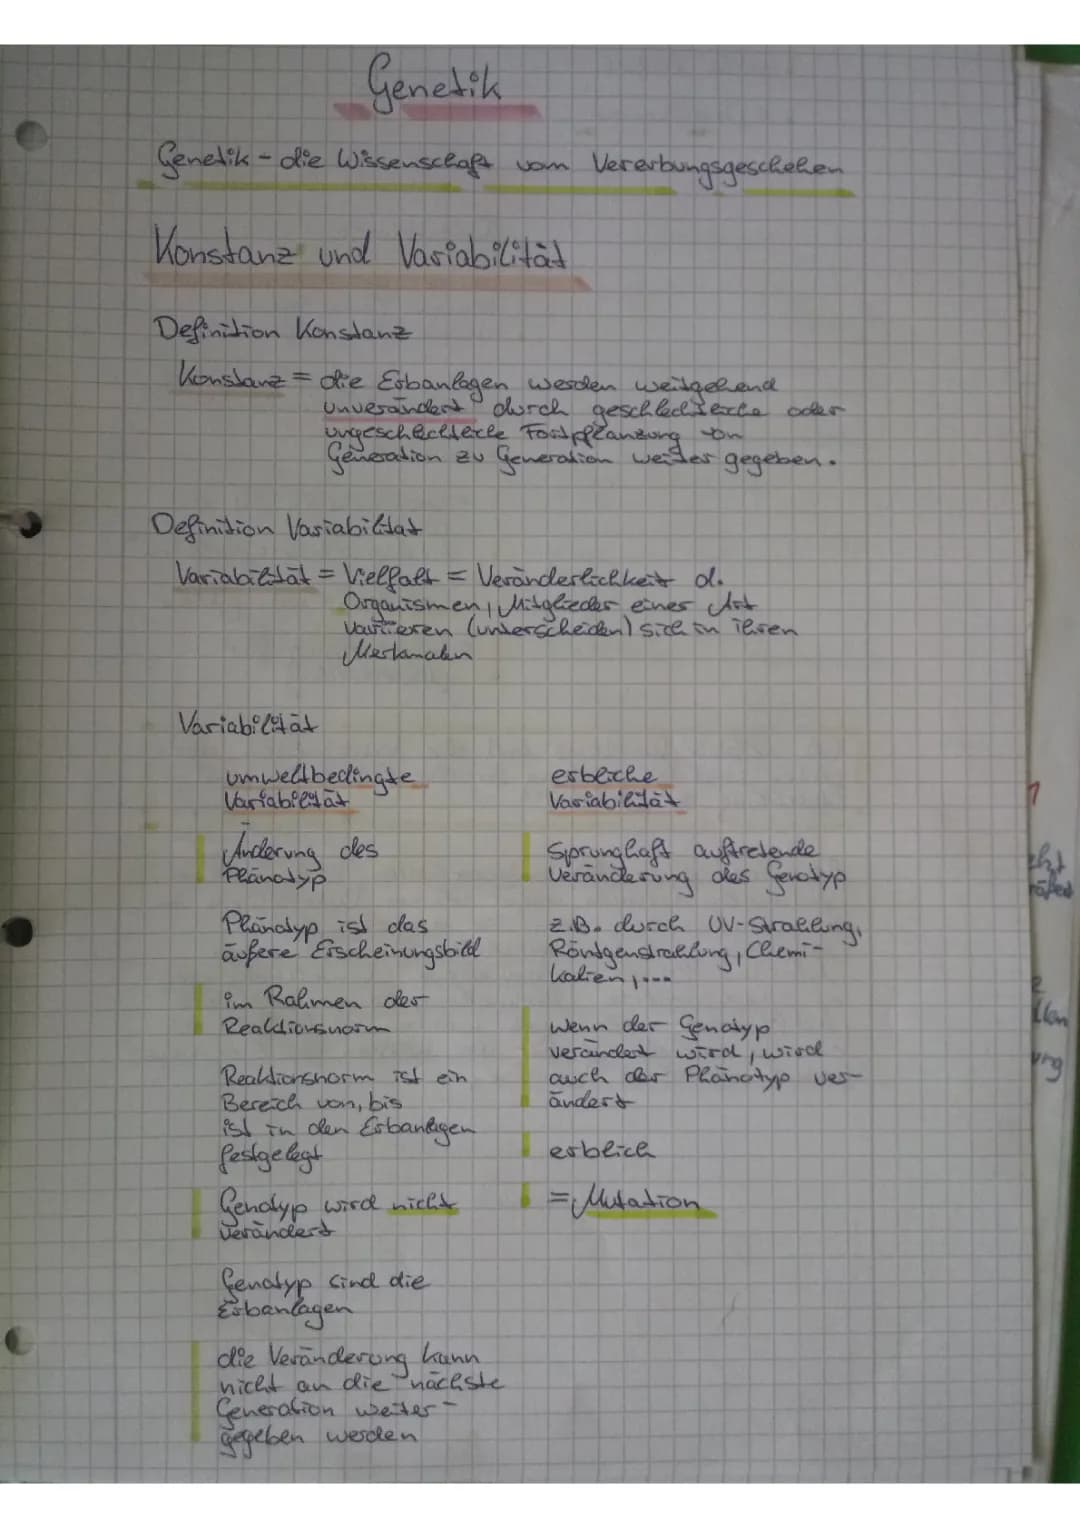 Genetik
Genetik - die Wissenschaft vom Vererbungsgeschehen
Konstanz und Variabilität
Definition Konstanz
Konstanz = die Erbanlagen werden weitgehend
unverändert durch geschlechtliche oder
ungeschlechtliche Fortpflanzung von
Generation zu Generation weiter gegeben.
Definition Variabilitat
Variabilität = Vielfalt = Veränderlichkeit d.
Organismen, Mitglieder einer Art
variieren (unterscheiden) sich in ihren
Merkmalen
Variabilität
umweltbedingte
Variabilität
Änderung des
Phänotyp
Phänotyp ist das
äußere Erscheinungsbild
im Rahmen der
Reaktionsnorm
Reaktionsnorm ist ein
Bereich von, bis
ist in den Erbanlagen
festgelegt
Genotyp wird nicht
verändert
Genotyp sind die
Erbanlagen
die Veränderung kann
nicht an die nächste
Generation weiter-
gegeben werden
erbliche
Variabilität
Sprunghaft auftretende
Veränderung des Genotyp
z.B. durch UV-Strahlung,
Röntgenstrahlung, Chemi-
kalien,...
Wenn der Genotyp
verändert wird, wird
auch der Phänotyp ver-
ändert
erblich
= Mutation